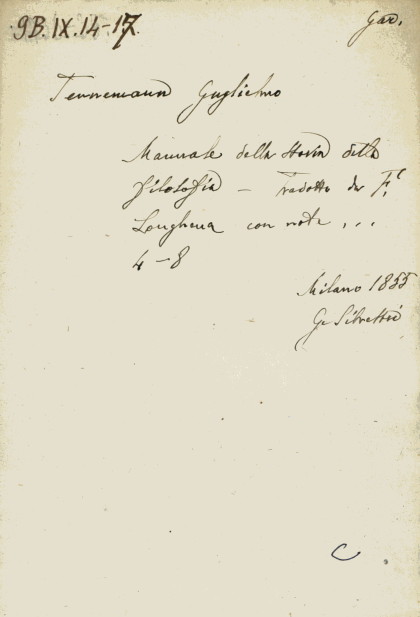 9B.IX.14-17.
Gar.
Tennemann Guglielmo
Manuale della Storia della
filosofia — Tradotto da F.
Longhena con note ...
4-8
Milano 1855
G. Silvestri
C